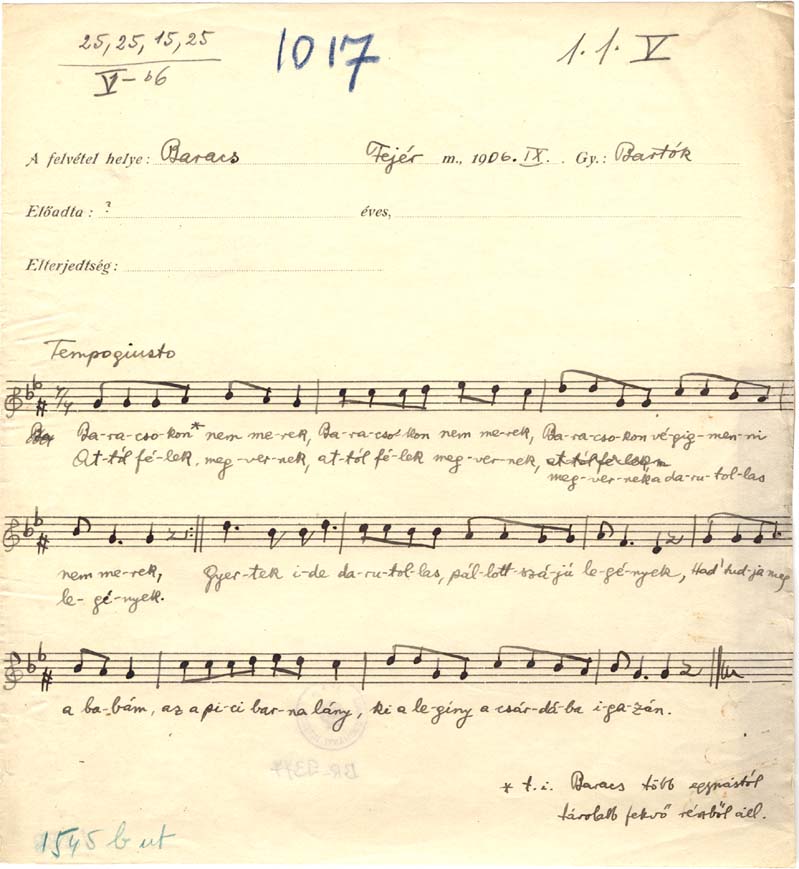 25, 25, 15, 25
V – b6
1017
1. 1. V
A felvétel helye: Baracs Fejér m., 1906. IX. Gy.: Bartók
Előadta: ? éves,
Elterjedtség:
Tempo giusto
7/4
Ba-ra-cso-kon* nem me-rek, Ba-ra-cso-kon nem me-rek, Ba-ra-cso-kon vé-gig-men-ni
At-tól fé-lek, meg-ver-nek, at-tól fé-lek meg-ver-nek, at-tól fé-lek
meg-ver-nek a da-ru-tol-las
nem me-rek, Gyer-tek i-de da-ru-tol-las, pál-lott-szá-jú le-gé-nyek, Had' tud-ja meg
le-gé-nyek.
a ba-bám, az a pi-ci bar-na lány, ki a le-gíny a csár-dá-ba i-ga-zán.
* t. i. Baracs több egymástól
távolabb fekvő részből áll.
1545 b ut